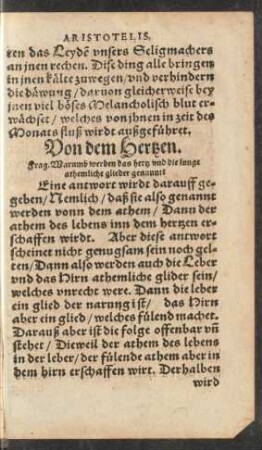 ARISTOTELIS.
ten das Leydẽ vnsers Seligmachers
an jnen rechen. Diß ding alle bringen
in jnen kälte zuwegen/ vnd verhindern
die däwung/ daruon gleicherweise bey
jnen viel böses Melancholisch blut er-
wächset/ welches von jhnen in zeit des
Monats fluß wirdt außgeführet.
Von dem Hertzen.
Frag. Warumb werden das hertz vnd die lunge
athemliche glieder genannt?
Eine antwort wirdt darauff ge-
geben/ Nemlich/ daß sie also genannt
werden vonn dem athem/ Dann der
athem des lebens inn dem hertzen er-
schaffen wirdt. Aber diese antwort
scheinet nicht genugsam sein noch gel-
ten/ Dann also werden auch die Leber
vnd das Hirn athemliche glider sein/
welches vnrecht were. Dann die leber
ein glied der narung ist/ das Hirn
aber ein glied/ welches fülend machet.
Darauß aber ist die folge offenbar vñ
stehet/ Dieweil der athem des lebens
in der leber/ der fülende athem aber in
dem hirn erschaffen wirt. Derhalben
wird